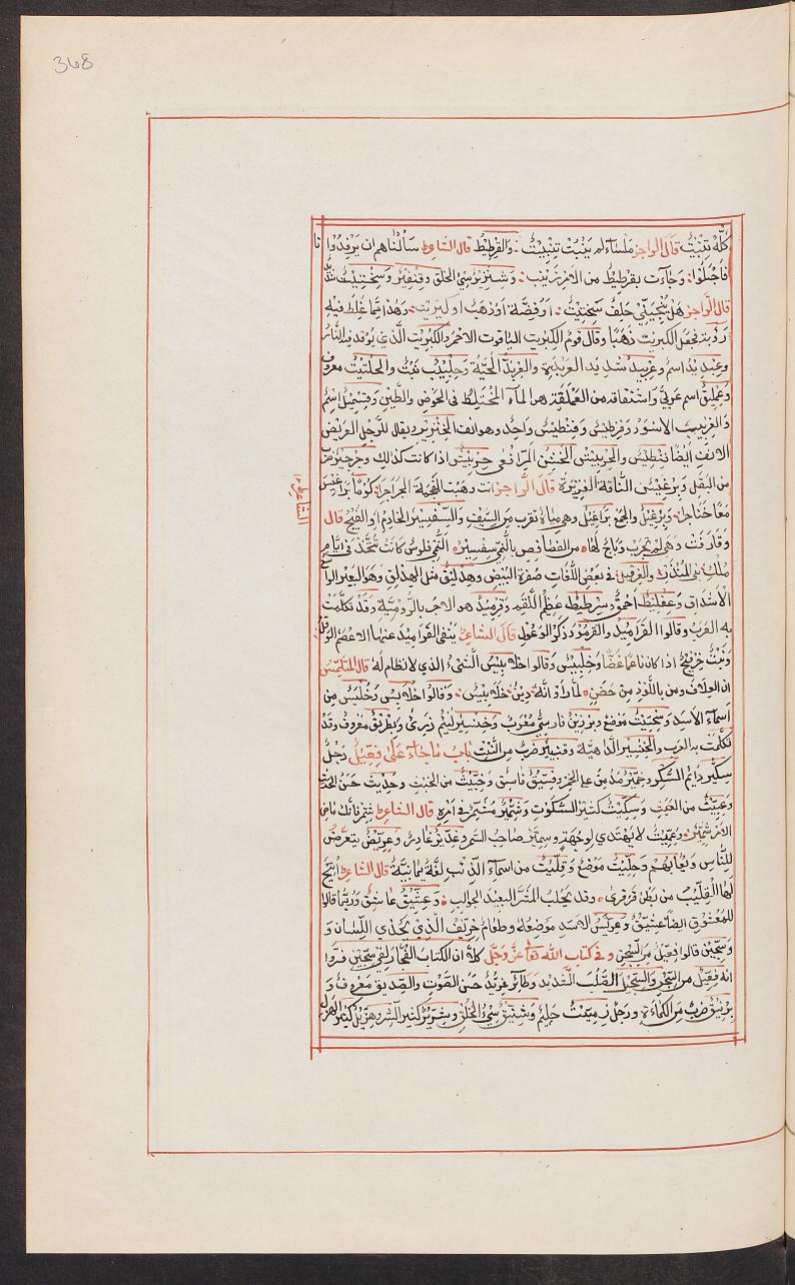 368
كلّه تنبيت قال الراجز ملساء لم ينبت تنبيت والقرطيط قال الشاعر سالناهم ان يرفدونا
فاجبلوا وجاءت بقرطيط من الامر زينب وشنزير سيئ الخلق وقنفير وسختيت
قال الراجز هل تنجيني حلف سختيت او فضة او ذهب او كبريت وهذا مما غلط فيه
رؤبة فجعل الكبريت ذهبا وقال قوم الكبريت الياقوت الاحمر والكبريت الذي يوقد فيه النار
اسم وعربيد شديد العربدة والعربد الحيّة وحلبيب نبت والحلتيت معروف
وعمليق اسم عربيّ واشتقاقه من العملقة وهو الماء المختلط في الحوض والطين
والغربيب الاسود وفرطيس وفنطيس واحد وهو انف الخنزير ويقال للرجل العريض
الانف ايضا فنطيس والخربيش الخشن المرا فعى خربيش اذا كانت كذلك وجرجير ضرب
من البقل وبرغيس الناقة الغزيرة قال الراجز انت وهبت الهجمة الجراجرا كوما براغيس
معا خناجرا وبرغيل والجمع براغيل وهي مياه تقرب من السيف والسفسير الخادم او الفيج قال الشاعر
وقارفت وهي لم تجرب وباع لها من الفصافص بالنمي سفسير النمي فلوس كانت تتخذ في ايام
ملك بني المنذر في بعض اللغات صفرة البيض وهدليق مثل الهذلق وهو البعير الواسع
الاشداق وعفليط احمق وسرطيط عظيم اللقم وقرميد هو الاجر بالرومية وقد تكلمت
به العرب وقالوا القراميد والقرمود ذكر الوعول قال الشاعر ينفى القراميد عنها الاعصم الوقل
ونبت اذا كان ناعما غضا وخلبيس وقالوا خلابيس الشيء الذي لا نظام له قال المتلمس
ان العلاف ومن باللوذ من حضن لما راوا انه دين خلابيس وقالوا خلابيس وخلبيس من
اسماء الاسد وسختيت موضع وبرزين فارسي معرب وخنسير لئيم زمري وبطريق معروف وقد
تكلمت به العرب والخنسير الداهية وقنبير ضرب من النبت باب ما جاء على فعيل رجل
سكير دائم السكر وخمير مدمن على الخمر وفسيق فاسق وخبيث من الخبث وحديث حسن الحديث
وعبيث من العبث وسكيت كثير السكوت وشمير مشمر في امره قال الشاعر شمر فانك ماض
الامر شمير وعميت لا يهتدي لوجهته وسمير صاحب السمر وغدير غادر وعريض يتعرض
للناس وحليت موضع وقليب من اسماء الذئب لغة يمانية قال الشاعر اتيح
لها القليب من بطن قرقرى وقد يجلب الشر البعيد الجوالب وعشيق عاشق وربما قالوا
للمعشوق ايضا عشيق وعريس الاسد موضعه وطعام حريف الذي يحذي اللسان و
وسجين قالوا فعيل من السجن وفي كتاب الله تعالى عز وجل كلا ان الكتاب الفجار لفي سجين
انه فعيل من السجن والسجيل الصلب الشديد وطائر غريد حسن الصوت والصديق معروف و
برنيق ضرب من الكماءة ورجل زميت حليم وشنيق سيئ الخلق وشرير كثير الشر وهزيل كثير الهزل